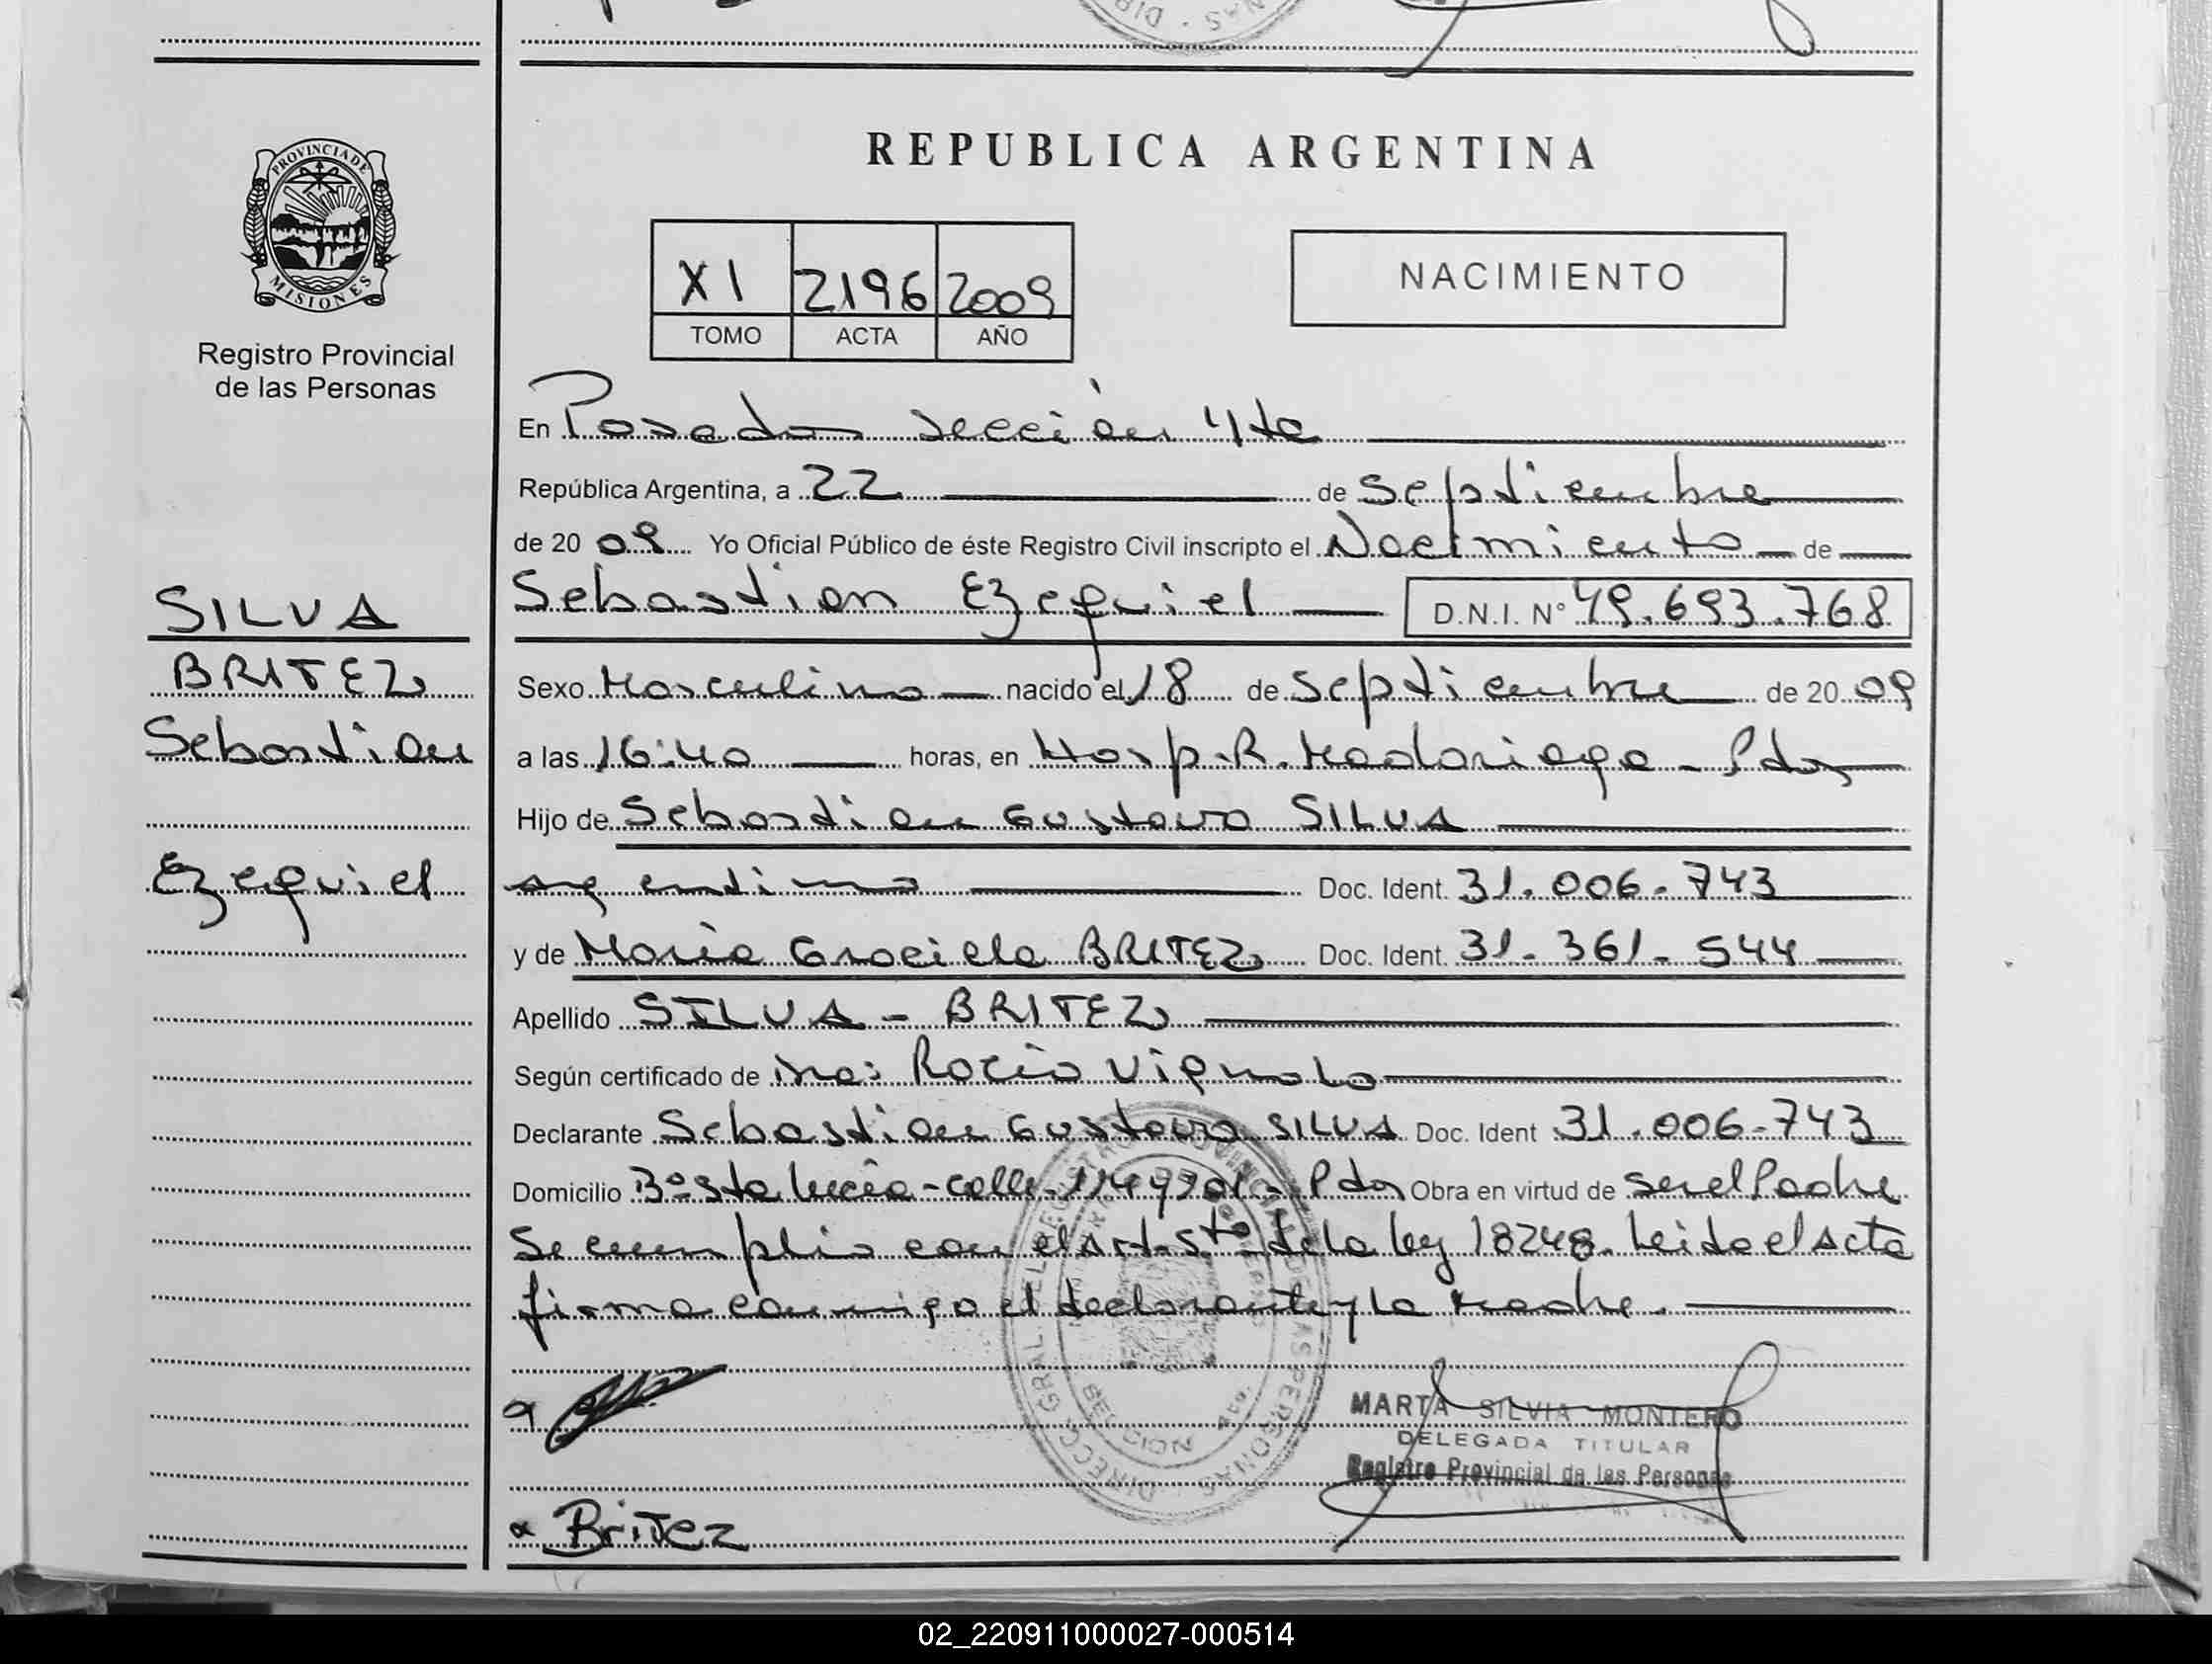 REPUBLICA ARGENTINA
PROVINCIA DE
MISIONES
Registro Provincial
de las Personas
XI 2196 2009
TOMO ACTA AÑO
NACIMIENTO
SILVA
BRITEZ
Sebastian
Ezequiel
En Posadas sección 4ta
República Argentina, a 22 de septiembre
de 20 09 Yo Oficial Público de éste Registro Civil inscripto el Nacimiento de
Sebastian Ezequiel D.N.I. N° 49.693.768
Sexo Masculino nacido el 18 de septiembre de 20 09
a las 16:40 horas, en Hosp. R. Madariaga - Pdas
Hijo de Sebastian Gustavo SILVA
argentino Doc. Ident. 31.006.743
y de María Graciela BRITEZ Doc. Ident. 31.361.544
Apellido SILVA - BRITEZ
Según certificado de Dra: Rocío Vignolo
Declarante Sebastian Gustavo SILVA Doc. Ident 31.006.743
Domicilio B° Sta Lucía - calle Pdas Obra en virtud de ser el Padre
Se cumplio con el Art. 5to de la ley 18248. Leida el Acta
firma conmigo el declarante y la Madre.
MARTA SILVIA MONTERO
DELEGADA TITULAR
Registro Provincial de las Personas
Britez
02_220911000027-000514